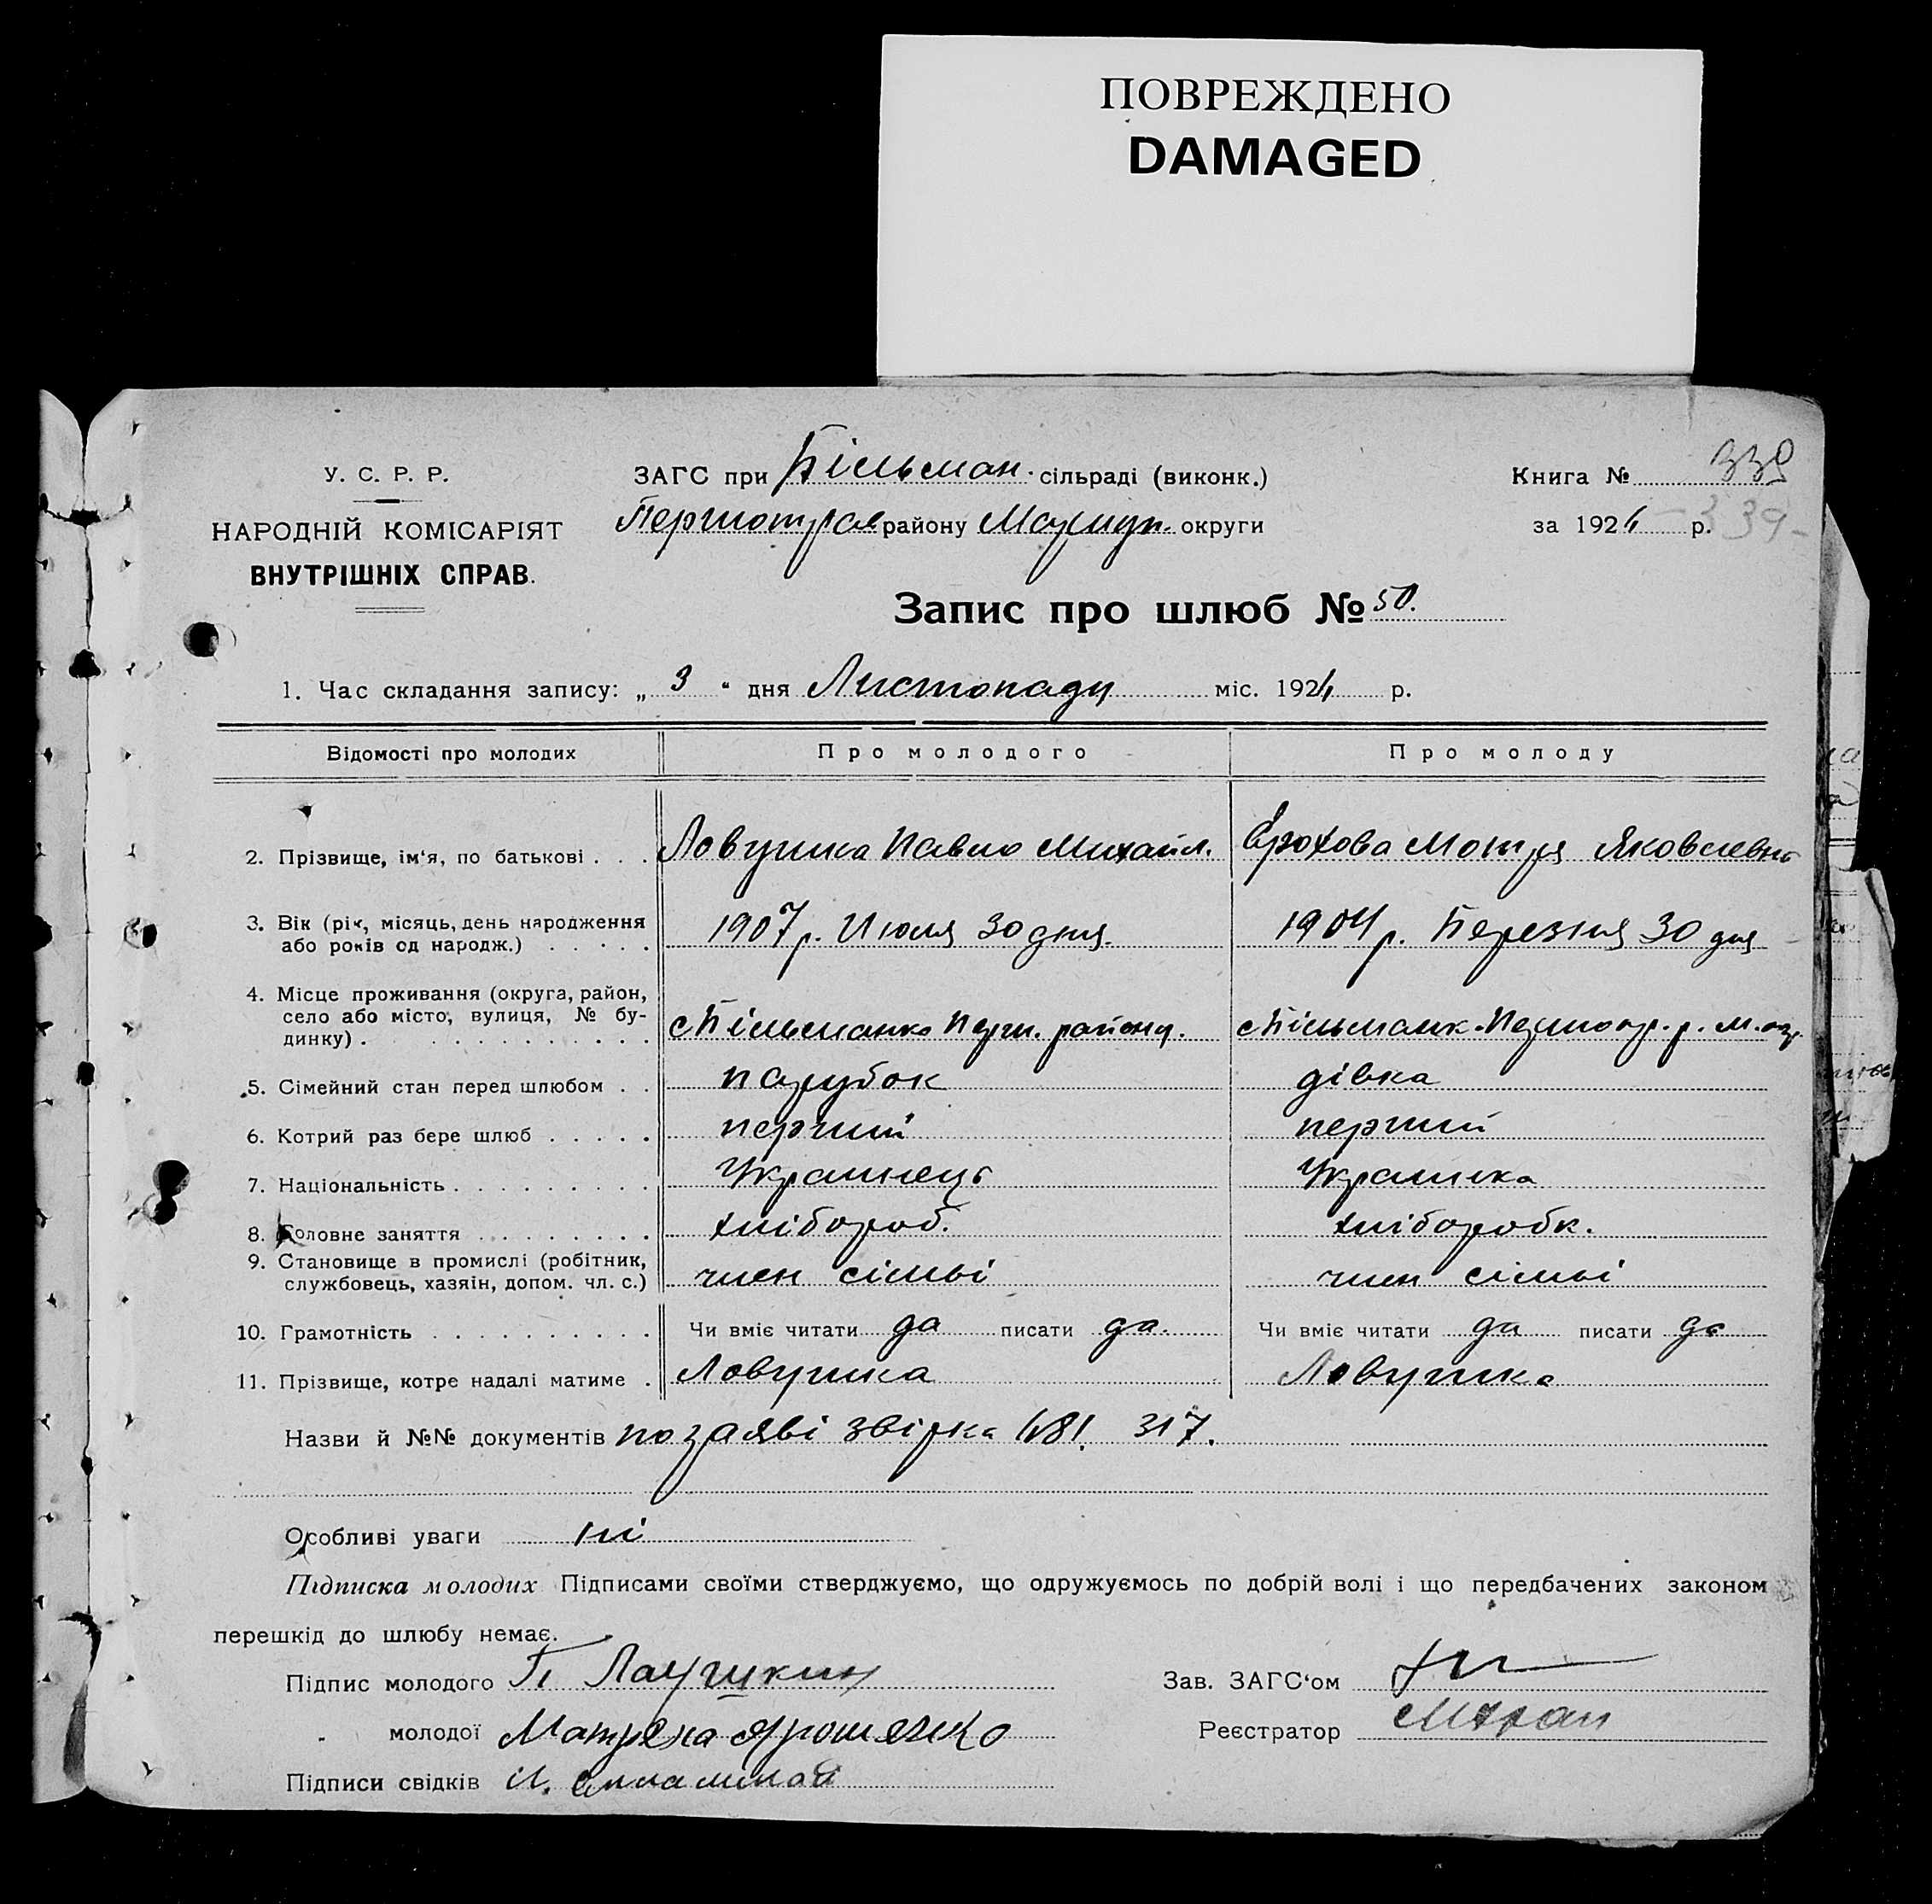 ПОВРЕЖДЕНО
DAMAGED
У. С. Р. Р.
НАРОДНІЙ КОМІСАРІЯТ
ВНУТРІШНІХ СПРАВ.
ЗАГС при Більман. сільраді (виконк.)
Першотрав району Маріуп. округи
Книга № 339
за 192 р. 339-
Запис про шлюб № 50.
1. Час складання запису: „ 3 " дня Листопаду міс. 192 р.
Відомості про молодих Про молодого Про молоду
2. Прізвище, ім'я, по батькові . . . Ловушка Павло Михайл. Мотря Яковлевна
3. Вік (рік, місяць, день народження
або років од народж.) . . . . . 1907 р. Июля 30 дня. 1904 р. Березня 30 дня
4. Місце проживання (округа, район,
село або місто, вулиця, № бу-
динку) . . . . . . . . . . . . с Більманка Перш. району. с Більманк. Першотр. р. М. окр.
5. Сімейний стан перед шлюбом . . парубок дівка
6. Котрий раз бере шлюб . . . . . перший перший
7. Національність . . . . . . . . . Украинець Украинка
8. Головне заняття . . . . . . . . . хлібороб. хліборобк.
9. Становище в промислі (робітник,
службовець, хазяін, допом. чл. с.) член сімьі член сімьі
10. Грамотність . . . . . . . . . . Чи вміє читати да писати да. Чи вміє читати да писати да
11. Прізвище, котре надалі матиме . Ловушка Ловушка
Назви й №№ документів по заяві звірка 317.
Особливі уваги ні
Підписка молодих Підписами своїми стверджуємо, що одружуємось по добрій волі і що передбачених законом
перешкід до шлюбу немає.
Підпис молодого П Лаушкин Зав. ЗАГС'ом
молодої Матрена Ярошенко Реєстратор
Підписи свідків